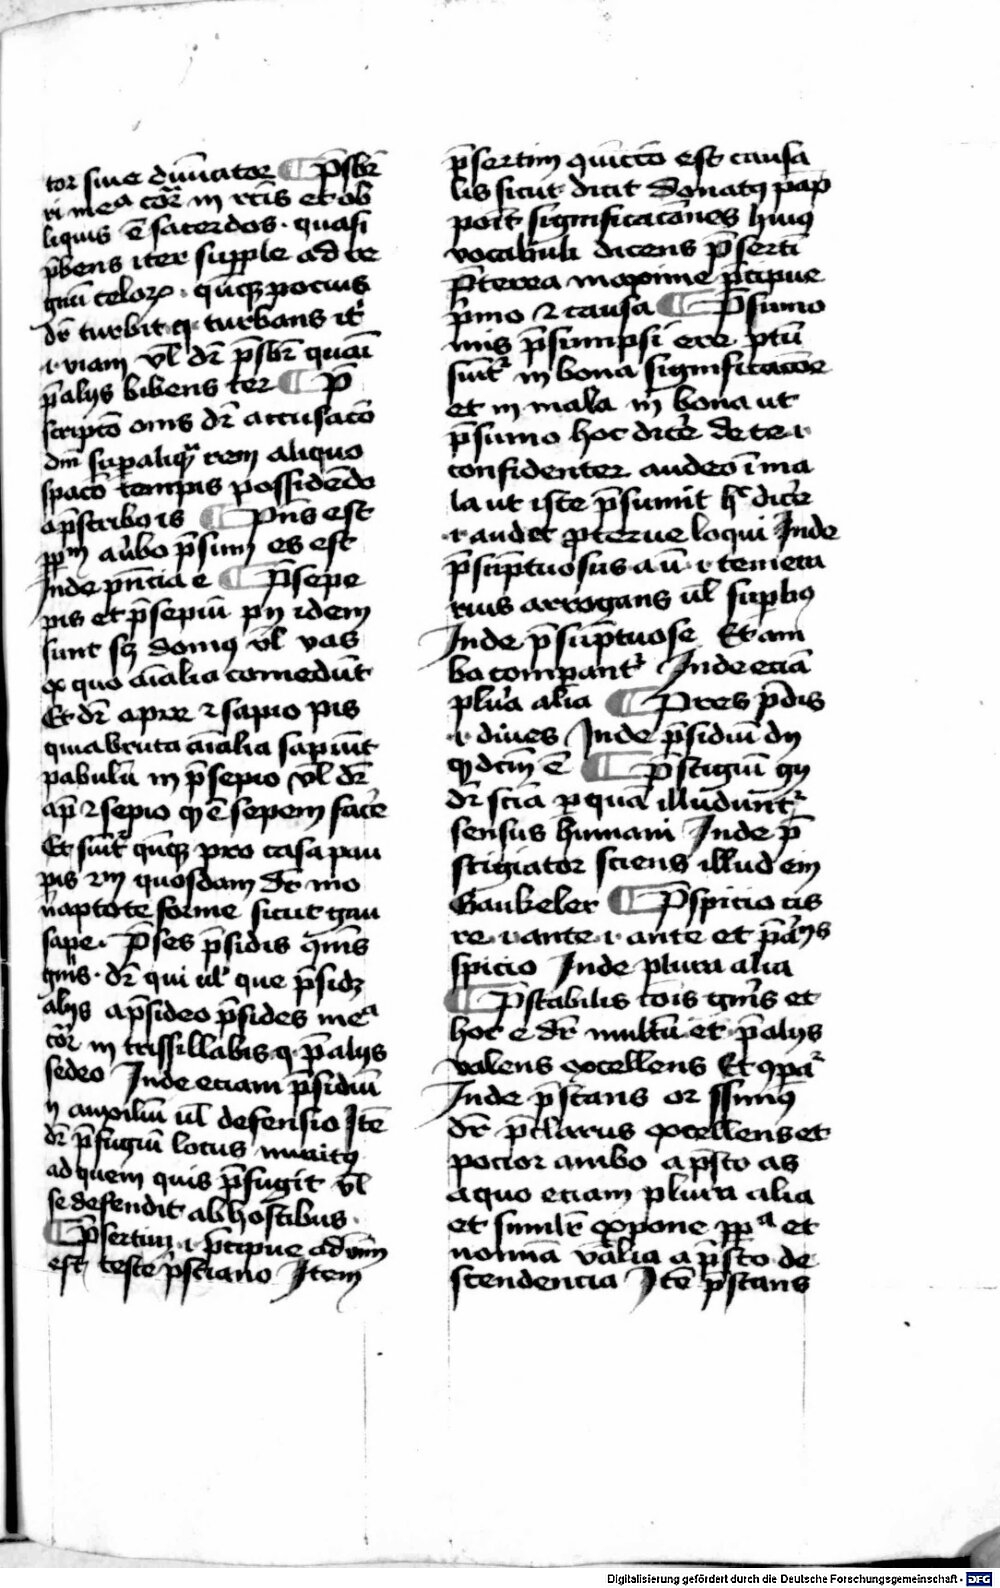 tor siue diuīator ¶ P̄sbr̄
ri meᵃ cor̄ in rc̄is et ob
liquis ē sacerdos · quasi
p̄bens iter supple ad re
gnū celoꝝ · qn̄qꝫ pocius
dr̄ turbit qꝫ turbans itr̄
·i· viam vl̄ dr̄ p̄sbr̄ quasi
p̄ alijs bibens ter ¶ P̄
scripcō onis dr̄ accusacō
dm̄ super aliquā rem aliquo
spacō tempis possidēdo
a p̄scribo is ¶ P̄ns est
ppⁱᵐ a v̄bo p̄sum es est
Inde p̄ncia e ¶ P̄sepe
pis et p̄sepiū pij idem
sunt scꝫ domꝰ vl̄ vas
ex quo aīalia comedūt
Et dr̄ a pre ⁊ sapio pis
quia bruta aīalia sapiūt
pabulū in p̄sepio vl̄ dr̄
a p̄ ⁊ sepio qꝫ ē sepem facer̄
Et sūitᷣ qn̄qꝫ pro casa pau
pis ⁊ m̄ quosdam dr̄ mo
naptote forme sicut gau
sape · P̄ses p̄sidis gn̄is
gn̄is · dr̄ qui vl̄ que p̄sidꝫ
alijs a p̄sideo p̄sides meᵃ
cor̄ in trissillabis qꝫ p̄ alijs
sedeo Inde eciam p̄sidiū
ij auxiliū vl̄ defensio Itē
dr̄ p̄fugiū locus munitꝰ
ad quem quis p̄fugit vl̄
se defendit ab hostibus ·
¶ P̄sertim ·i· p̄cipue ad v̄m̄
est teste p̄sciano Item
p̄sertim quicco est causa
lis sicut dicit Donatꝰ pap
poīt significacōnes huiꝰ
vocabuli dicens p̄serti
p̄terea maxime p̄cipue
p̄mo ⁊ causa ¶ P̄sumo
mis p̄sumpsi ere ptū
sūitᷣ in bona significacōe
et in mala in bona ut
p̄sumo hoc dicēr de te ·i·
confidenter audeo ī ma
la ut iste p̄sumit hᶜ dicēr
·i· audet proterue loqui Inde
p̄sūptuosus a ū ·i· temera
rius arrogans vl̄ supbꝰ
Inde p̄sūptuose Et am
bo compantᷣ Inde eciā
plur̄a alia ¶ Pres p̄dis
·i· diues Inde p̄sidiū dij
qꝫ dcm̄ ē ¶ P̄stigiū gij
dr̄ scīa per quā illudūntᷣ
sensus humani Inde p̄
stigiator sciens illud eīn
Gaukeler ¶ P̄spicio cis
re ·i· ante ·i· ante et p̄ alijs
spicio Inde plura alia
¶ P̄stabilis cōis gn̄is et
hoc e dr̄ multū et p̄ alijs
valens excellens Et ꝯpaᷣ
Inde p̄stans or ssimꝰ
dr̄ p̄clarus excellens et
pocior ambo a p̄sto as
a quo eciam plura alia
et simil̄r expone ppⁱᵃ et
nomīa v̄alia a p̄sto de
scendencia Itē p̄stans
Digitalisierung gefördert durch die Deutsche Forschungsgemeinschaft - DFG